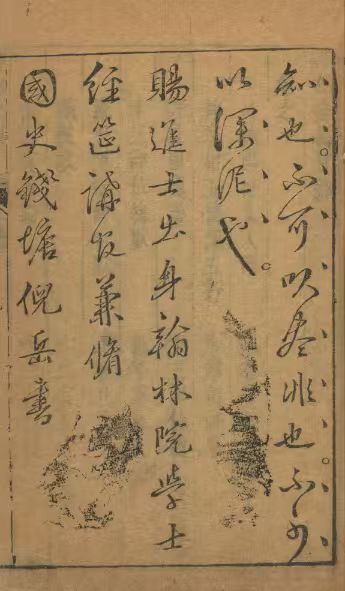 知也。不可以盡非也。不可
以深泥也。
賜進士出身翰林院學士
經筵講官兼脩
國史錢塘倪岳書